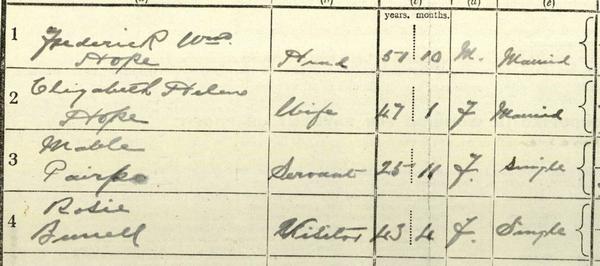 years. months.
1 Frederick Wm.
Hope Head 51 10 M. Married
2 Elizabeth Helena
Hope Wife 47 1 F Married
3 Mable
Servant 25 11 F. Single
4 Rosie
Burrell Visitor 43 4 F. Single